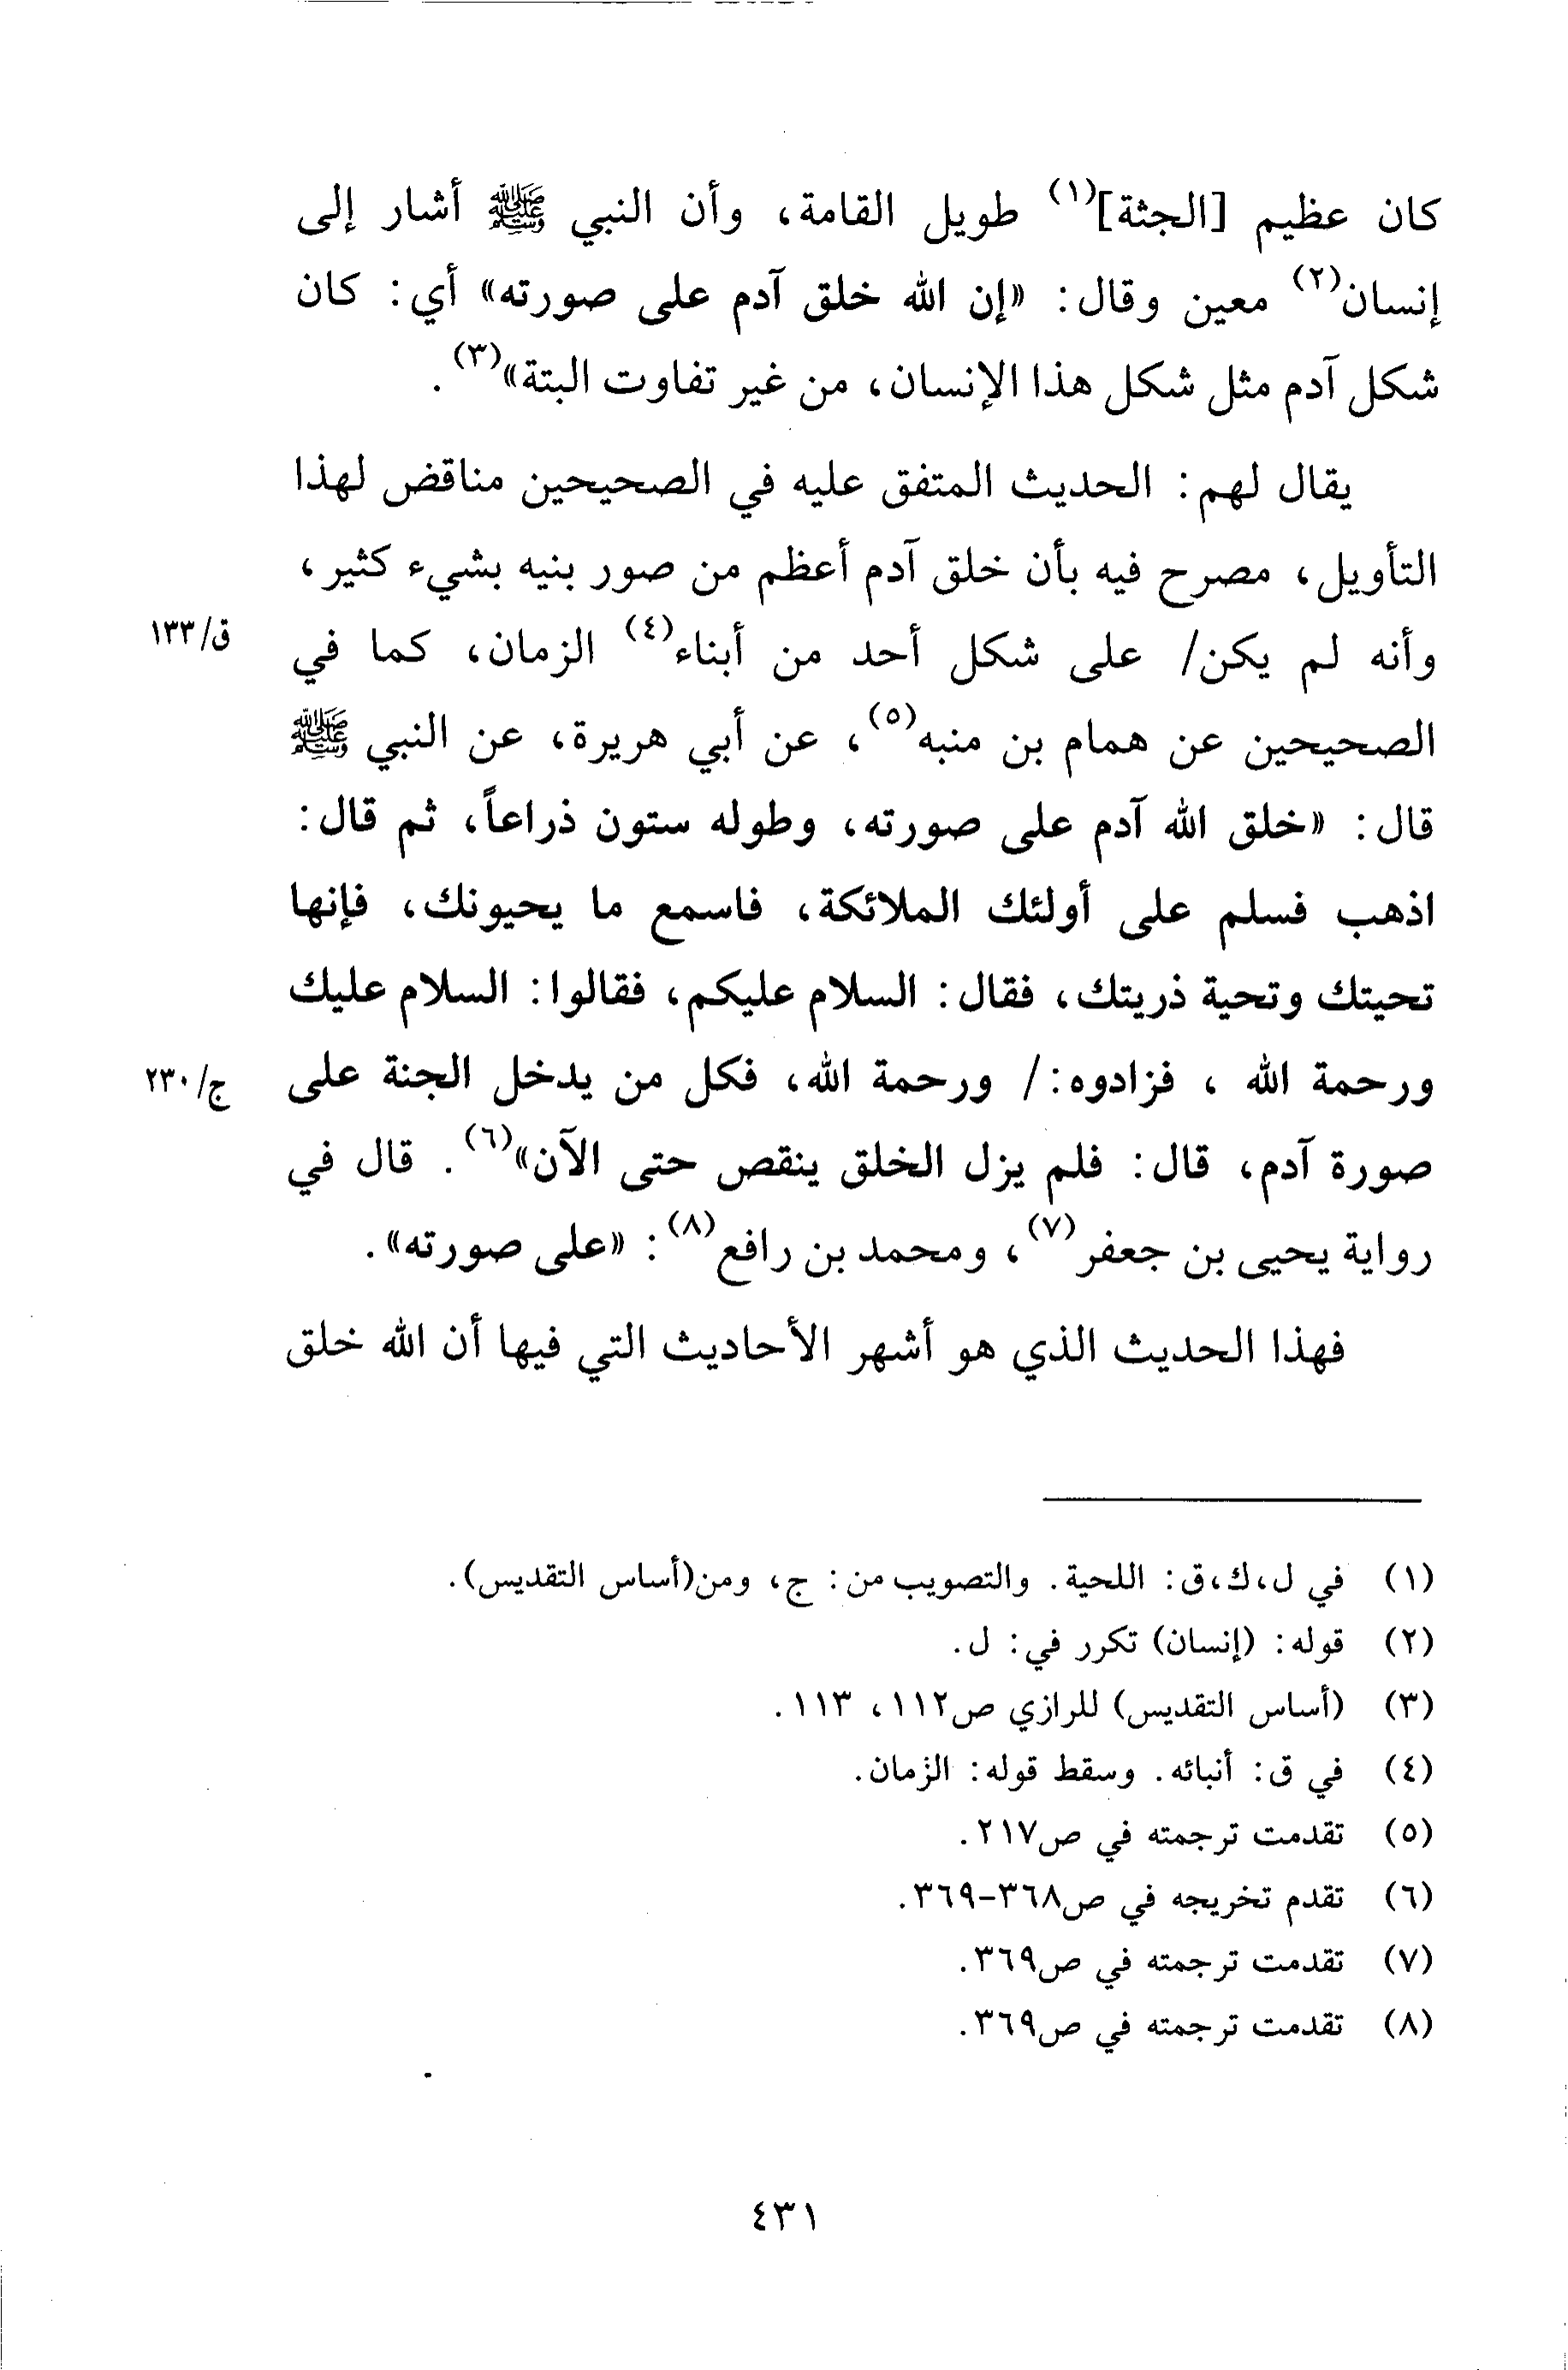 كان عظيم [الجثة](١) طويل القامة، وأن النبي ﷺ أشار إلى
إنسان(٢) معين وقال: «إن الله خلق آدم على صورته» أي: كان
شكل آدم مثل شكل هذا الإنسان، من غير تفاوت البتة»(٣).
يقال لهم: الحديث المتفق عليه في الصحيحين مناقض لهذا
التأويل، مصرح فيه بأن خلق آدم أعظم من صور بنيه بشيء كثير،
وأنه لم يكن/ على شكل أحد من أبناء(٤) الزمان، كما في
ق/١٣٣
الصحيحين عن همام بن منبه(٥)، عن أبي هريرة، عن النبي ﷺ
قال: «خلق الله آدم على صورته، وطوله ستون ذراعاً، ثم قال:
اذهب فسلم على أولئك الملائكة، فاسمع ما يحيونك، فإنها
تحيتك وتحية ذريتك، فقال: السلام عليكم، فقالوا: السلام عليك
ورحمة الله ، فزادوه: / ورحمة الله، فكل من يدخل الجنة على
ج/٢٣٠
صورة آدم، قال: فلم يزل الخلق ينقص حتى الآن»(٦). قال في
رواية يحيى بن جعفر(٧)، ومحمد بن رافع(٨): «على صورته».
فهذا الحديث الذي هو أشهر الأحاديث التي فيها أن الله خلق
(١) في ل،ك،ق: اللحية. والتصويب من: ج، ومن(أساس التقديس).
(٢) قوله: (إنسان) تكرر في: ل.
(٣) (أساس التقديس) للرازي ص١١٢، ١١٣.
(٤) في ق: أنبائه. وسقط قوله: الزمان.
(٥) تقدمت ترجمته في ص٢١٧.
(٦) تقدم تخريجه في ص٣٦٨-٣٦٩.
(٧) تقدمت ترجمته في ص٣٦٩.
(٨) تقدمت ترجمته في ص٣٦٩.
٤٣١